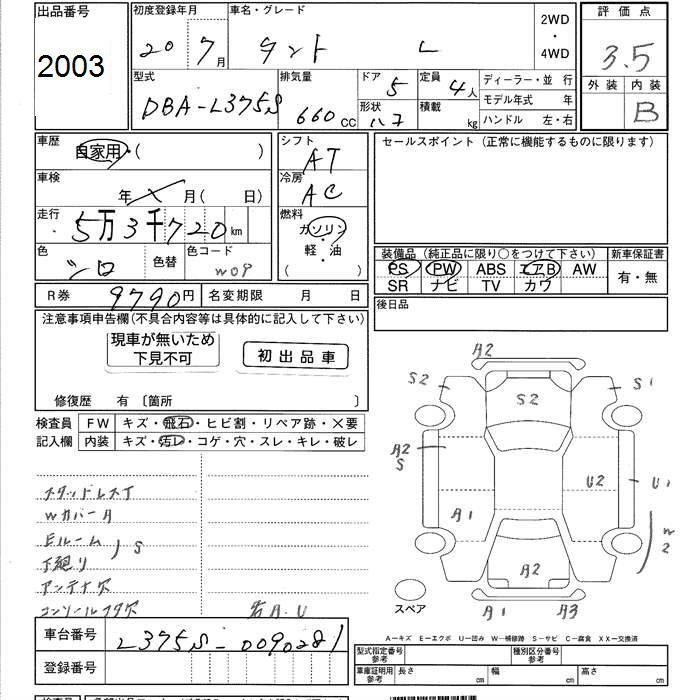 出品番号 初度登録年月 車名・グレード 2WD・4WD 評価点
2003 20 7月 タント L 3.5
型式 排気量 ドア 5 定員 4人 ディーラー・並 行 外装 内装
DBA-L375S 660cc 形状 ハコ 積載 kg モデル年式 年 B
ハンドル 左・右
車歴 自家用・( ) シフト AT セールスポイント(正常に機能するものに限ります)
車検 年 月( 日) 冷房 AC
走行 5万3千720km 燃料 ガソリン
色 シロ 色替 色コード W09 軽・油 ( )
装備品(純正品に限り○をつけて下さい) 新車保証書
PS PW ABS エアB AW 有・無
SR ナビ TV カワ
R券 9790円 名変期限 月 日 後日品
注意事項申告欄(不具合内容等は具体的に記入して下さい)
現車が無いため
下見不可
初出品車
修復歴 有〔箇所 〕
検査員 FW キズ・飛石・ヒビ割・リペア跡・×要
記入欄 内装 キズ・汚レ・コゲ・穴・スレ・キレ・破レ
A2
S2 S2 S1
A2
S U2 U1
A1 W2
A2
スペア A1 A3
スタッドレス
Wカバー
Eルーム
下廻り S
アンテナ欠
コンソールフタ欠 右A.U
A-キズ E-エクボ U-凹み W-補修跡 S-サビ C-腐食 XX-交換済
車台番号 L375S-0090281
登録番号
型式指定番号 参考 種別区分番号 参考
車庫証明用 参考 長さ cm 幅 cm 高さ cm